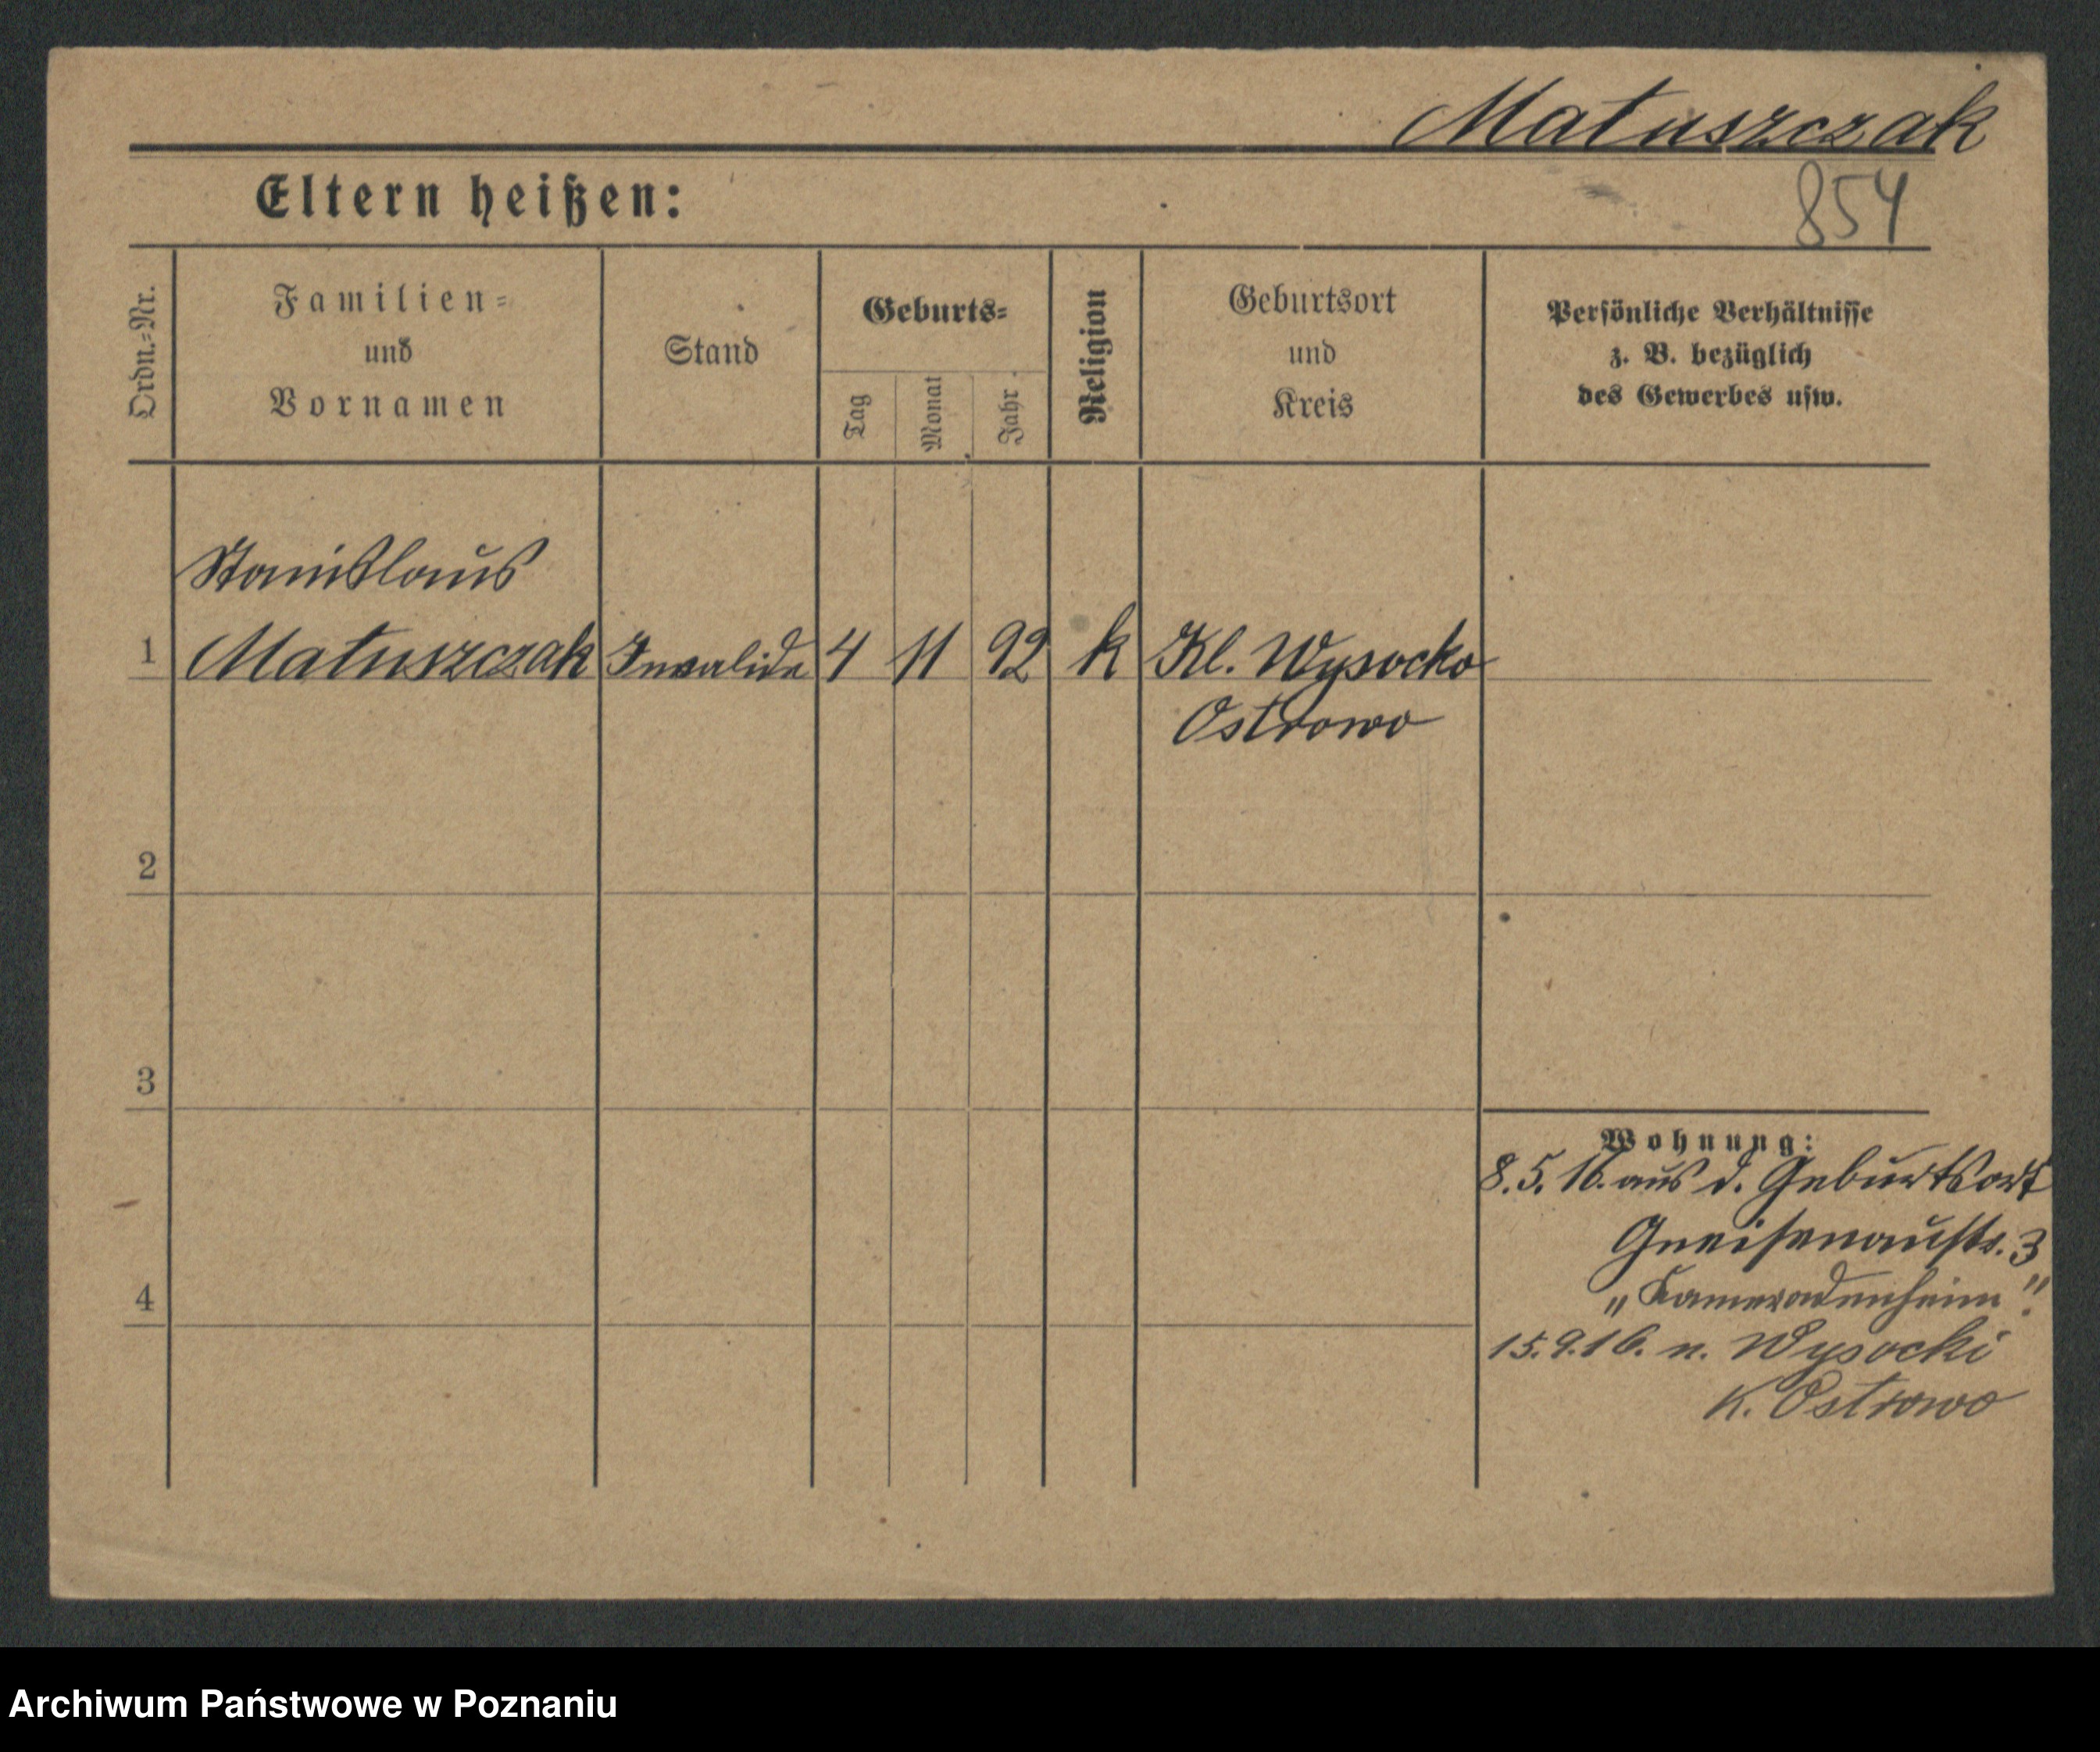 Matuszczak
Eltern heißen:
854
Ordn.-Nr.
Familien-
und
Vornamen
Stand
Geburts-
Tag
Monat
Jahr
Religion
Geburtsort
und
Kreis
Persönliche Verhältnisse
z. B. bezüglich
des Gewerbes usw.
Stanislaus
1 Matuszczak Invalide 4 11 92 k Kl. Wysocko
Ostrowo
2
3
4
Wohnung:
8.5.16. aus d. Geburtsort
Gneisenaustr. 3
"Kameradenheim".
15.9.16. n. Wysocki
K. Ostrowo
Archiwum Państwowe w Poznaniu